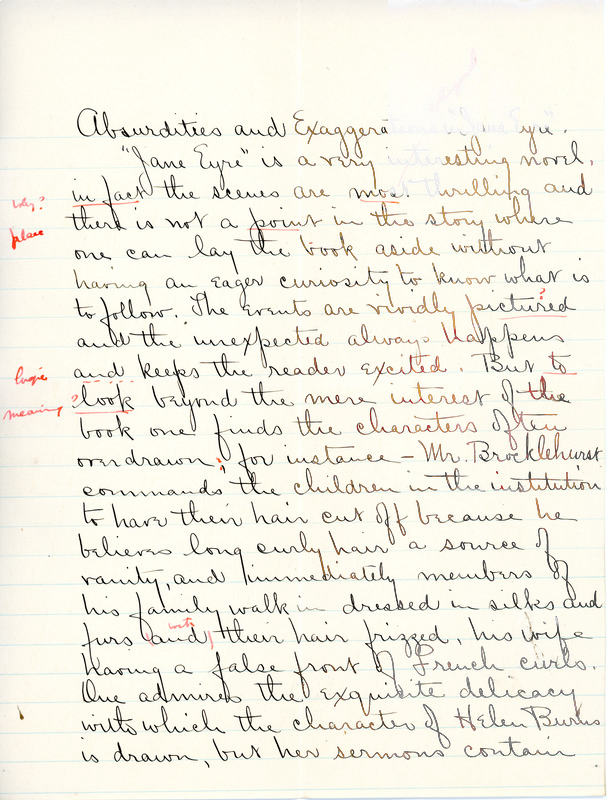 Absurdities and Exaggerations in "Jane Eyre".
"Jane Eyre" is a very interesting novel,
in fact the scenes are most thrilling and
why?
there is not a point in the story where
place
one can lay the book aside without
having an eager curiosity to know what is
to follow. The events are vividly pictured
?
and the unexpected always happens
and keeps the reader excited. But to
logic
look beyond the mere interest of the
meaning?
book one finds the characters often
overdrawn; for instance – Mr. Brocklehurst
commands the children in the institution
to have their hair cut off because he
believes long curly hair a source of
vanity, and immediately members of
his family walk in dressed in silks and
furs (and) their hair frizzed, his wife
with
having a false front of French curls.
One admires the exquisite delicacy
with which the character of Helen Burns
is drawn, but her sermons contain